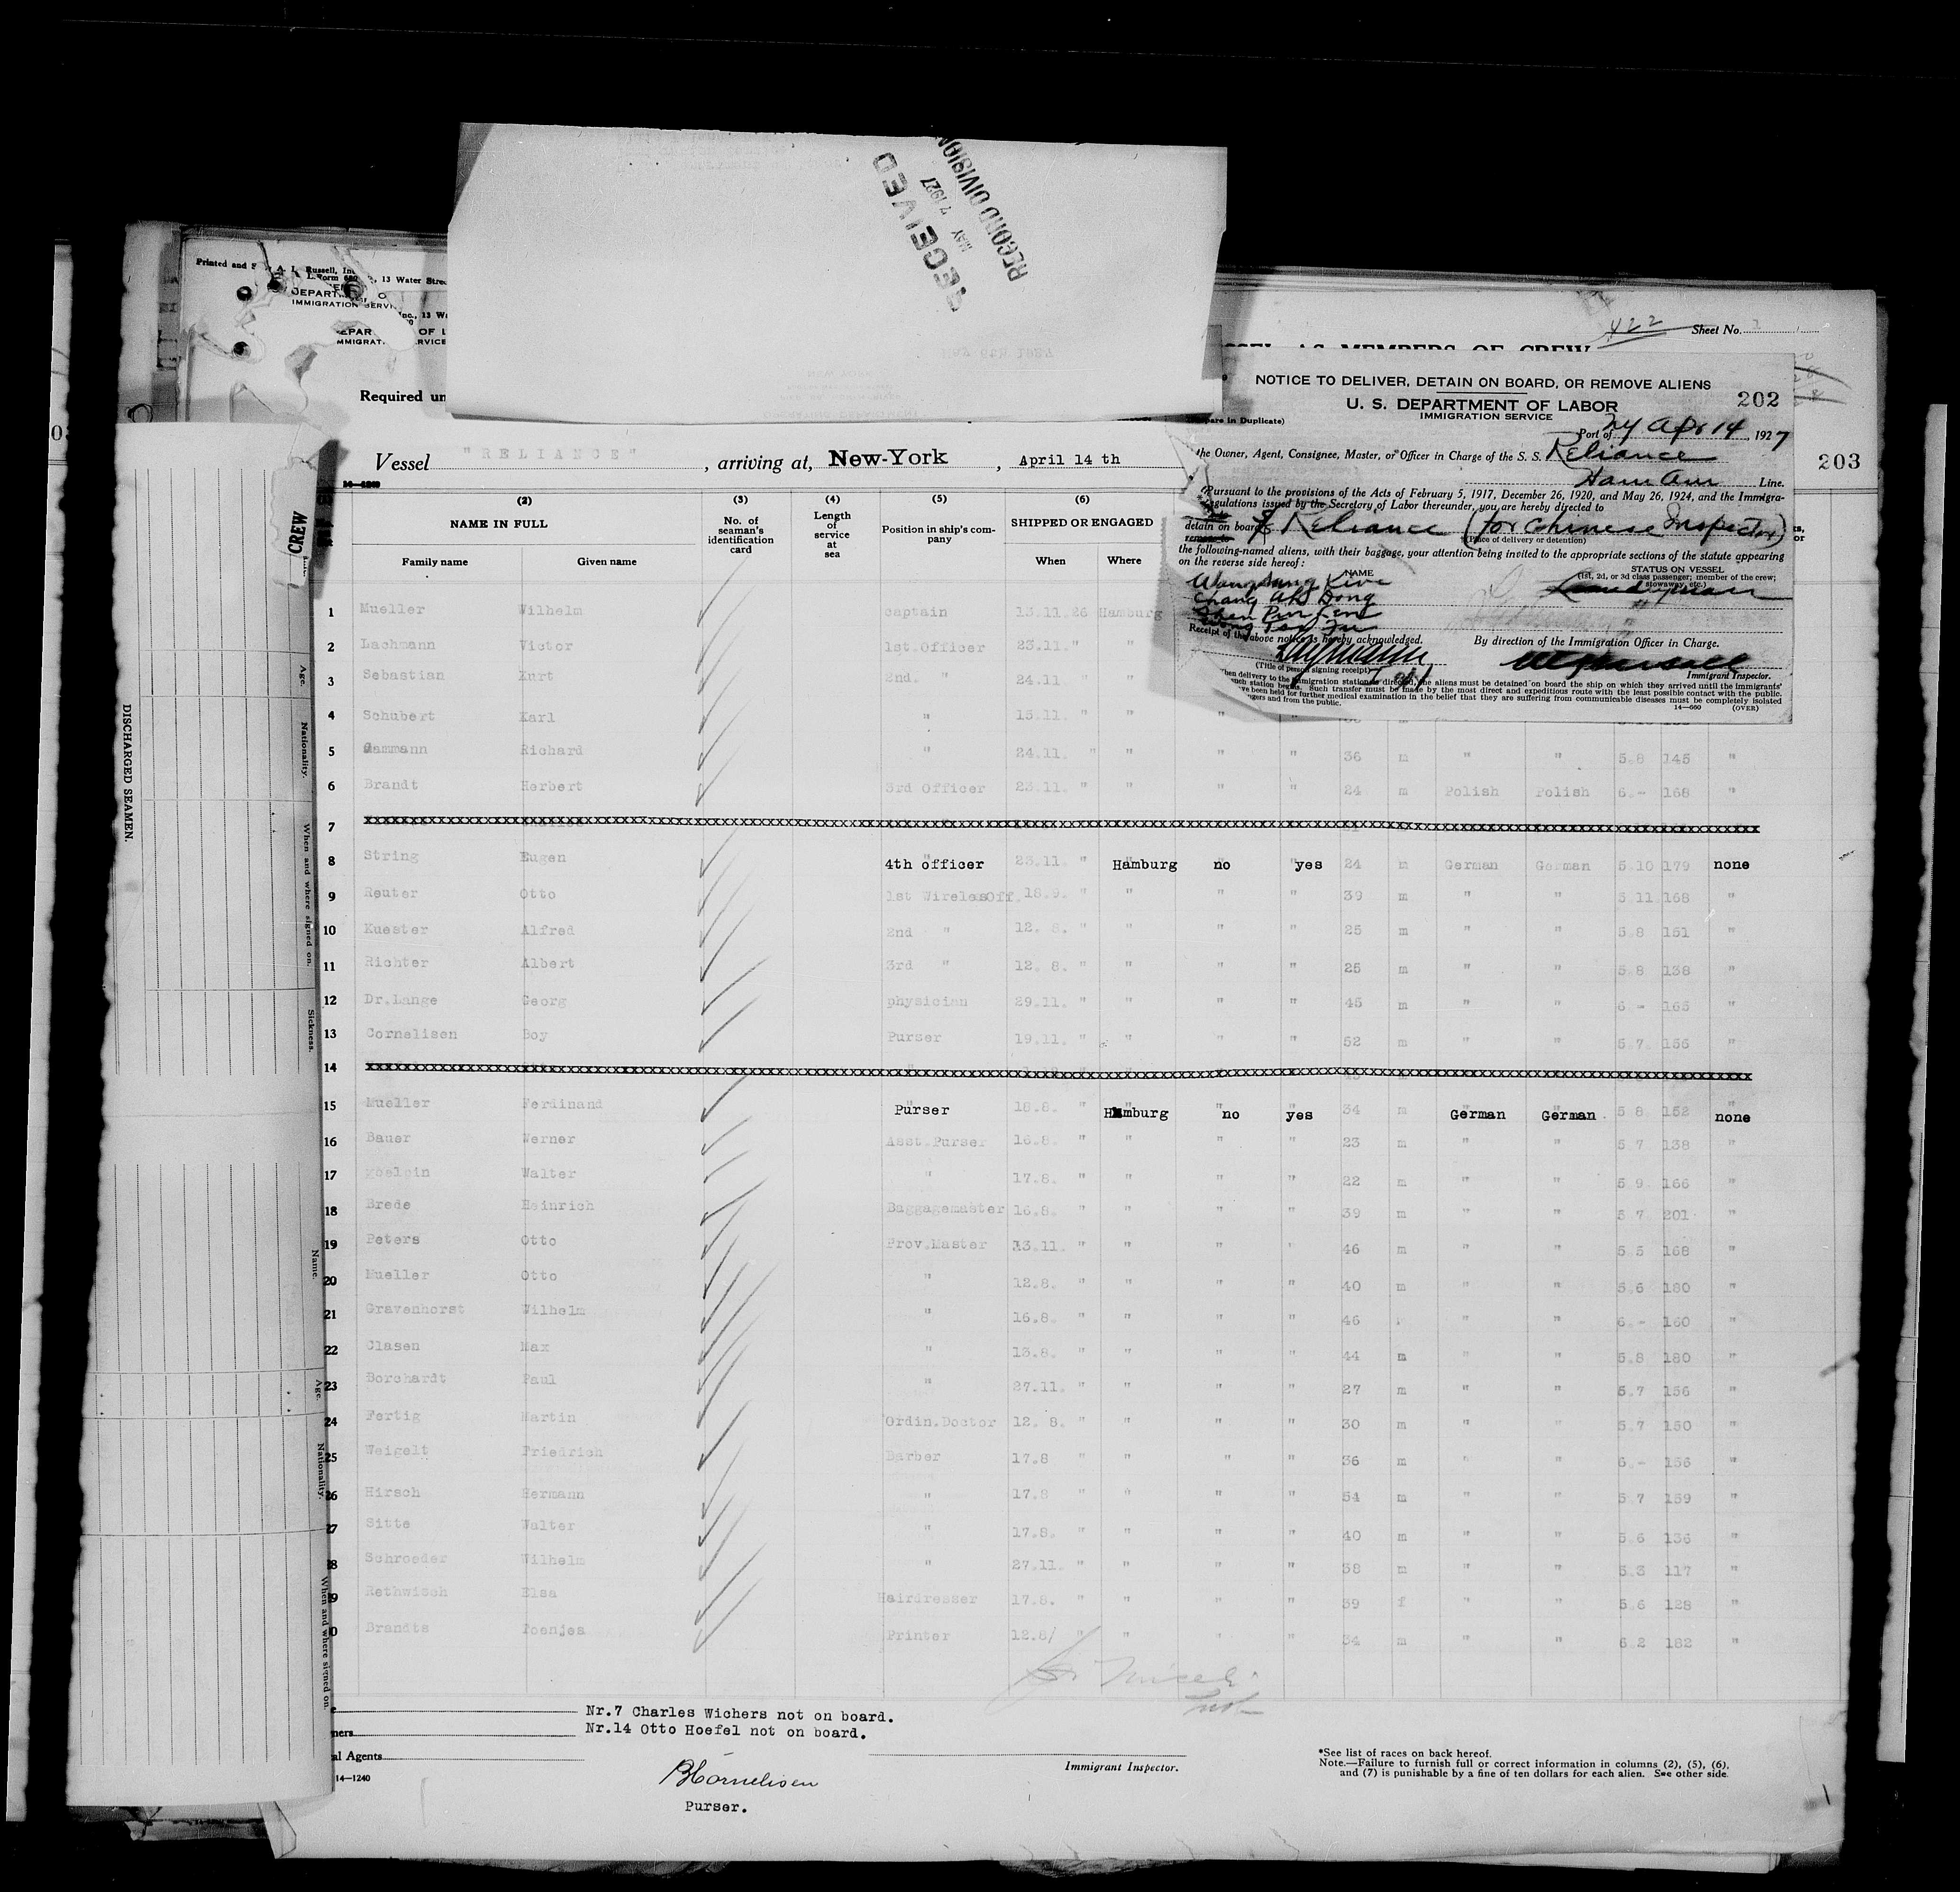 RECEIVED
MAY 7 1927
RECORD DIVISION
Printed and
A. L. Russell, Inc
13 Water
IMMIGRATION SERVI
Required un
422
Sheet No.
NOTICE TO DELIVER, DETAIN ON BOARD, OR REMOVE ALIENS
202
U. S. DEPARTMENT OF LABOR
IMMIGRATION SERVICE
Port of NY Apr 14, 1927
the Owner, Agent, Consignee, Master, or Officer in Charge of the S. S. Reliance
Ham Am Line.
203
Pursuant to the provisions of the Acts of February 5, 1917, December 26, 1920, and May 26, 1924, and the Immigra-
Regulations issued by the Secretary of Labor thereunder, you are hereby directed to
detain on board Reliance (for Chinese Inspector)
(Place of delivery or detention)
the following-named aliens, with their baggage, your attention being invited to the appropriate sections of the statute appearing
on the reverse side hereof:
NAME
STATUS ON VESSEL
(1st, 2d, or 3d class passenger; member of the crew;
stowaway, etc.)
Chang Ah Dong
Receipt of the above notice is hereby acknowledged.
By direction of the Immigration Officer in Charge.
(Title of person signing receipt)
Immigrant Inspector.
delivery to the immigration station is directed, the aliens must be detained on board the ship on which they arrived until the immigrants'
such station begins. Such transfer must be made by the most direct and expeditious route with the least possible contact with the public.
have been held for further medical examination in the belief that they are suffering from communicable diseases must be completely isolated
and from the public.
14—660 (OVER)
Vessel "RELIANCE", arriving at, New-York, April 14 th
(2) (3) (4) (5) (6)
NAME IN FULL
No. of seaman's identification card
Length of service at sea
Position in ship's company
SHIPPED OR ENGAGED
Family name Given name When Where
1 Mueller Wilhelm captain 13.11.26 Hamburg
2 Lachmann Victor 1st.Officer 23.11. " "
3 Sebastian Kurt 2nd. " 24.11 " "
4 Schubert Karl " 15.11. " "
5 Richard " 24.11. " " " " 36 m " " 5.8 145 "
6 Brandt Herbert 3rd Officer 23.11. " " " " 24 m Polish Polish 6.- 168 "
7
8 String Eugen 4th officer 23.11. " Hamburg no yes 24 m German German 5.10 179 none
9 Reuter Otto 1st WirelessOff. 18.9. " " " " 39 m " " 5.11 168 "
10 Kuester Alfred 2nd " 12. 8. " " " " 25 m " " 5.8 151 "
11 Richter Albert 3rd " 12. 8. " " " " 25 m " " 5.8 138 "
12 Dr.Lange Georg physician 29.11. " " " " 45 m " " 6 - 165 "
13 Cornelisen Boy Purser 19.11. " " " " 52 m " " 5.7. 156 "
14
15 Mueller Ferdinand Purser 18.8. " Hamburg no yes 34 m German German 5 8 152 none
16 Bauer Werner Asst.Purser 16.8. " " " " 23 m " " 5 7 138 "
17 Walter " 17.8. " " " " 22 m " " 5 9. 166 "
18 Brede Heinrich Baggagemaster 16.8. " " " " 39 m " " 5 7 201 "
19 Peters Otto Prov.Master 13.11. " " " " 46 m " " 5.5 168 "
20 Mueller Otto " 12.8. " " " " 40 m " " 5.6 180 "
21 Gravenhorst Wilhelm " 16.8. " " " " 46 " " 6.- 160 "
22 Clasen Max " 13.8. " " " " 44 m " " 5.8 180 "
23 Borchardt Paul " 27.11. " " " " 27 m " " 5.7 156 "
24 Fertig Martin Ordin.Doctor 12. 8. " " " " 30 m " " 5.7 150 "
25 Weigelt Friedrich Barber 17.8 " " " " 36 m " " 6.- 156 "
26 Hirsch Hermann " 17.8 " " " " 54 m " " 5 7 159 "
27 Sitte Walter " 17.8. " " " " 40 m " " 5.6 136 "
8 Schroeder Wilhelm " 27.11. " " " " 38 m " " 5.3 117 "
9 Rethwisch Elsa Hairdresser 17.8. " " " " 39 f " " 5.6 128 "
0 Brandts Poenjes Printer 12.8/ " " " " 34 m " " 6.2 182 "
Nr.7 Charles Wichers not on board.
Nr.14 Otto Hoefel not on board.
al Agents
14—1240
BCornelisen
Purser.
Immigrant Inspector.
*See list of races on back hereof.
Note.—Failure to furnish full or correct information in columns (2), (5), (6),
and (7) is punishable by a fine of ten dollars for each alien. See other side.
CREW
DISCHARGED SEAMEN.
Age.
Nationality.
When and where signed on.
Sickness.
Name.
Age.
Nationality.
When and where signed on.